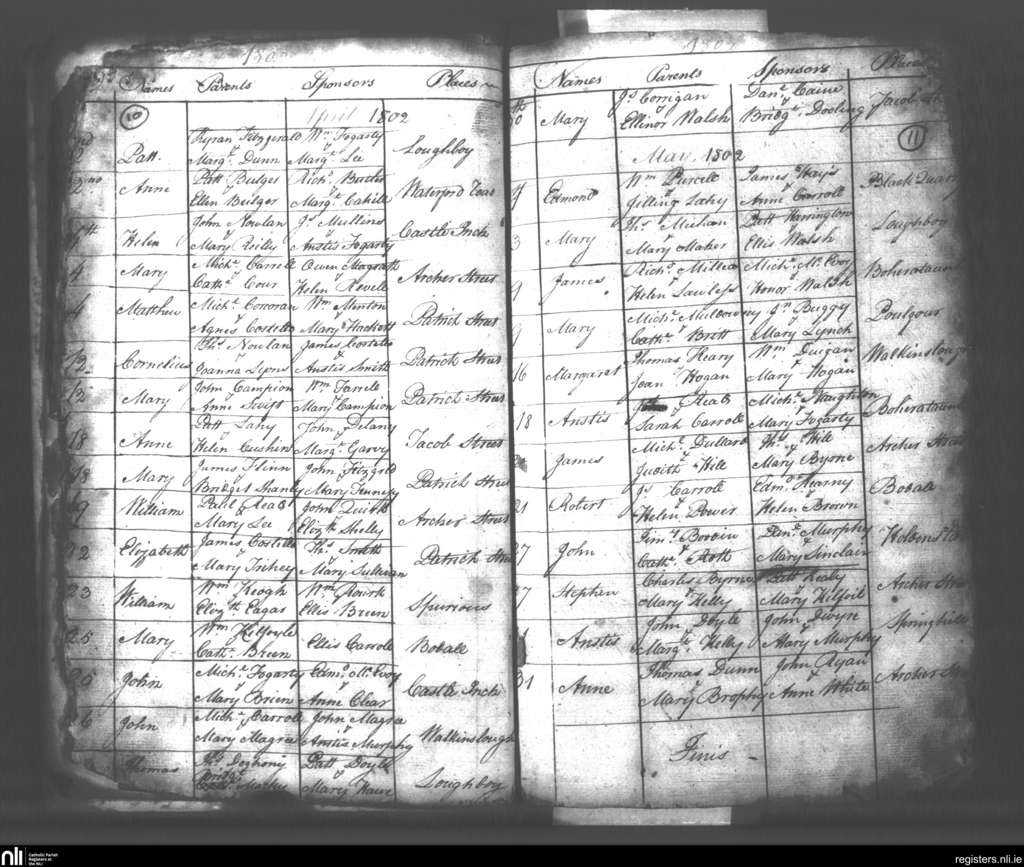 1802
Names Parents Sponsors Places
10
April 1802
Patt. Kyran Fitzgerald Wm Fogarty Loughboy
Margt. Dunn Margt. Lee
Anne Patt Bulger Richd. Waterford Road
Ellen Bulger Margt. Cahill
7th Helen John Nowlan Js. Mullins Castle Inch
Mary Reilly Anstis Fogarty
4 Mary Michl. Carrell Owen Magrath Archer Street
Cathe. Helen
4 Matthew Michl. Corcoran Wm. Minton Patrick Street
Agnes Costello Mary Hackett
12 Cornelius Ths. Nowlan James Costello Patrick Street
Joanna Lyons Anstis Smith
13 Mary John Campion Wm Farrell Patrick Street
Anne Swift Mary Campion
18 Anne Patt Lahy John Delany Jacob Street
Helen Cushin Margt. Garvy
18 Mary James Flinn John Fitzgrld Patrick Street
Bridget Shanly Mary
19 William Read John Quirk Archer Street
Mary Lee Elizth Shelly
22 Elizabeth James Costello Ths. Smith Patrick Street
Mary Trihey Mary Sullivan
23 William Wm Keogh Wm Rourk Spurious
Elizth Eagar Ellis Breen
25 Mary Wm Kilfoyle Ellis Carroll Boball
Cathe. Breen
25 John Michl. Fogarty Edmd. McEvoy Castle Inch
Mary Brien Anne Clear
26 John Michl. Carroll John Magra Walkinslough
Mary Magra Anstis Murphy
Thomas Patt Doyle Loughboy
Bridgt. Mary
1802
Names Parents Sponsors Places
11
30 Mary Js. Corrigan Danl. Caine Jacob
Ellinor Walsh Bridgt. Dooling
May 1802
Edmond Wm Purcell James Hays Black Quarry
Lahy Anne Carroll
3 Mary Ths. Meehan Patt Harrington Loughboy
Mary Maher Ellis Walsh
9 James Richd. Millea Michl. McEvoy Boheratauna
Helen Lawless Honor Walsh
9 Mary Michl. Muldowny Jn. Buggy Poulgour
Cathe. Britt Mary Lynch
16 Margaret Thomas Heary Wm. Duigan Walkinslough
Jean Hogan Mary Hogan
18 Anstis Read Michl. Naughton Boheratauna
Sarah Carroll Mary Fogarty
James Michl. Dullard Ths. Hill Archer Street
Judith Hill Mary Byrne
21 Robert Js. Carroll Edmd. Kearny Boball
Helen Power Helen Brown
27 John Murphy
Cathe. Roth Mary Sinclair
27 Stephen Charles Byrne Patt Healy Archer Street
Mary Kelly Mary Kilfoil
Anstis John Doyle John Dwyre Springhill
Margt. Kelly Mary Murphy
31 Anne Thomas Dunn John Ryan Archer
Mary Brophy Anne White
Finis
nli Catholic Parish
Registers at
the NLI
registers.nli.ie